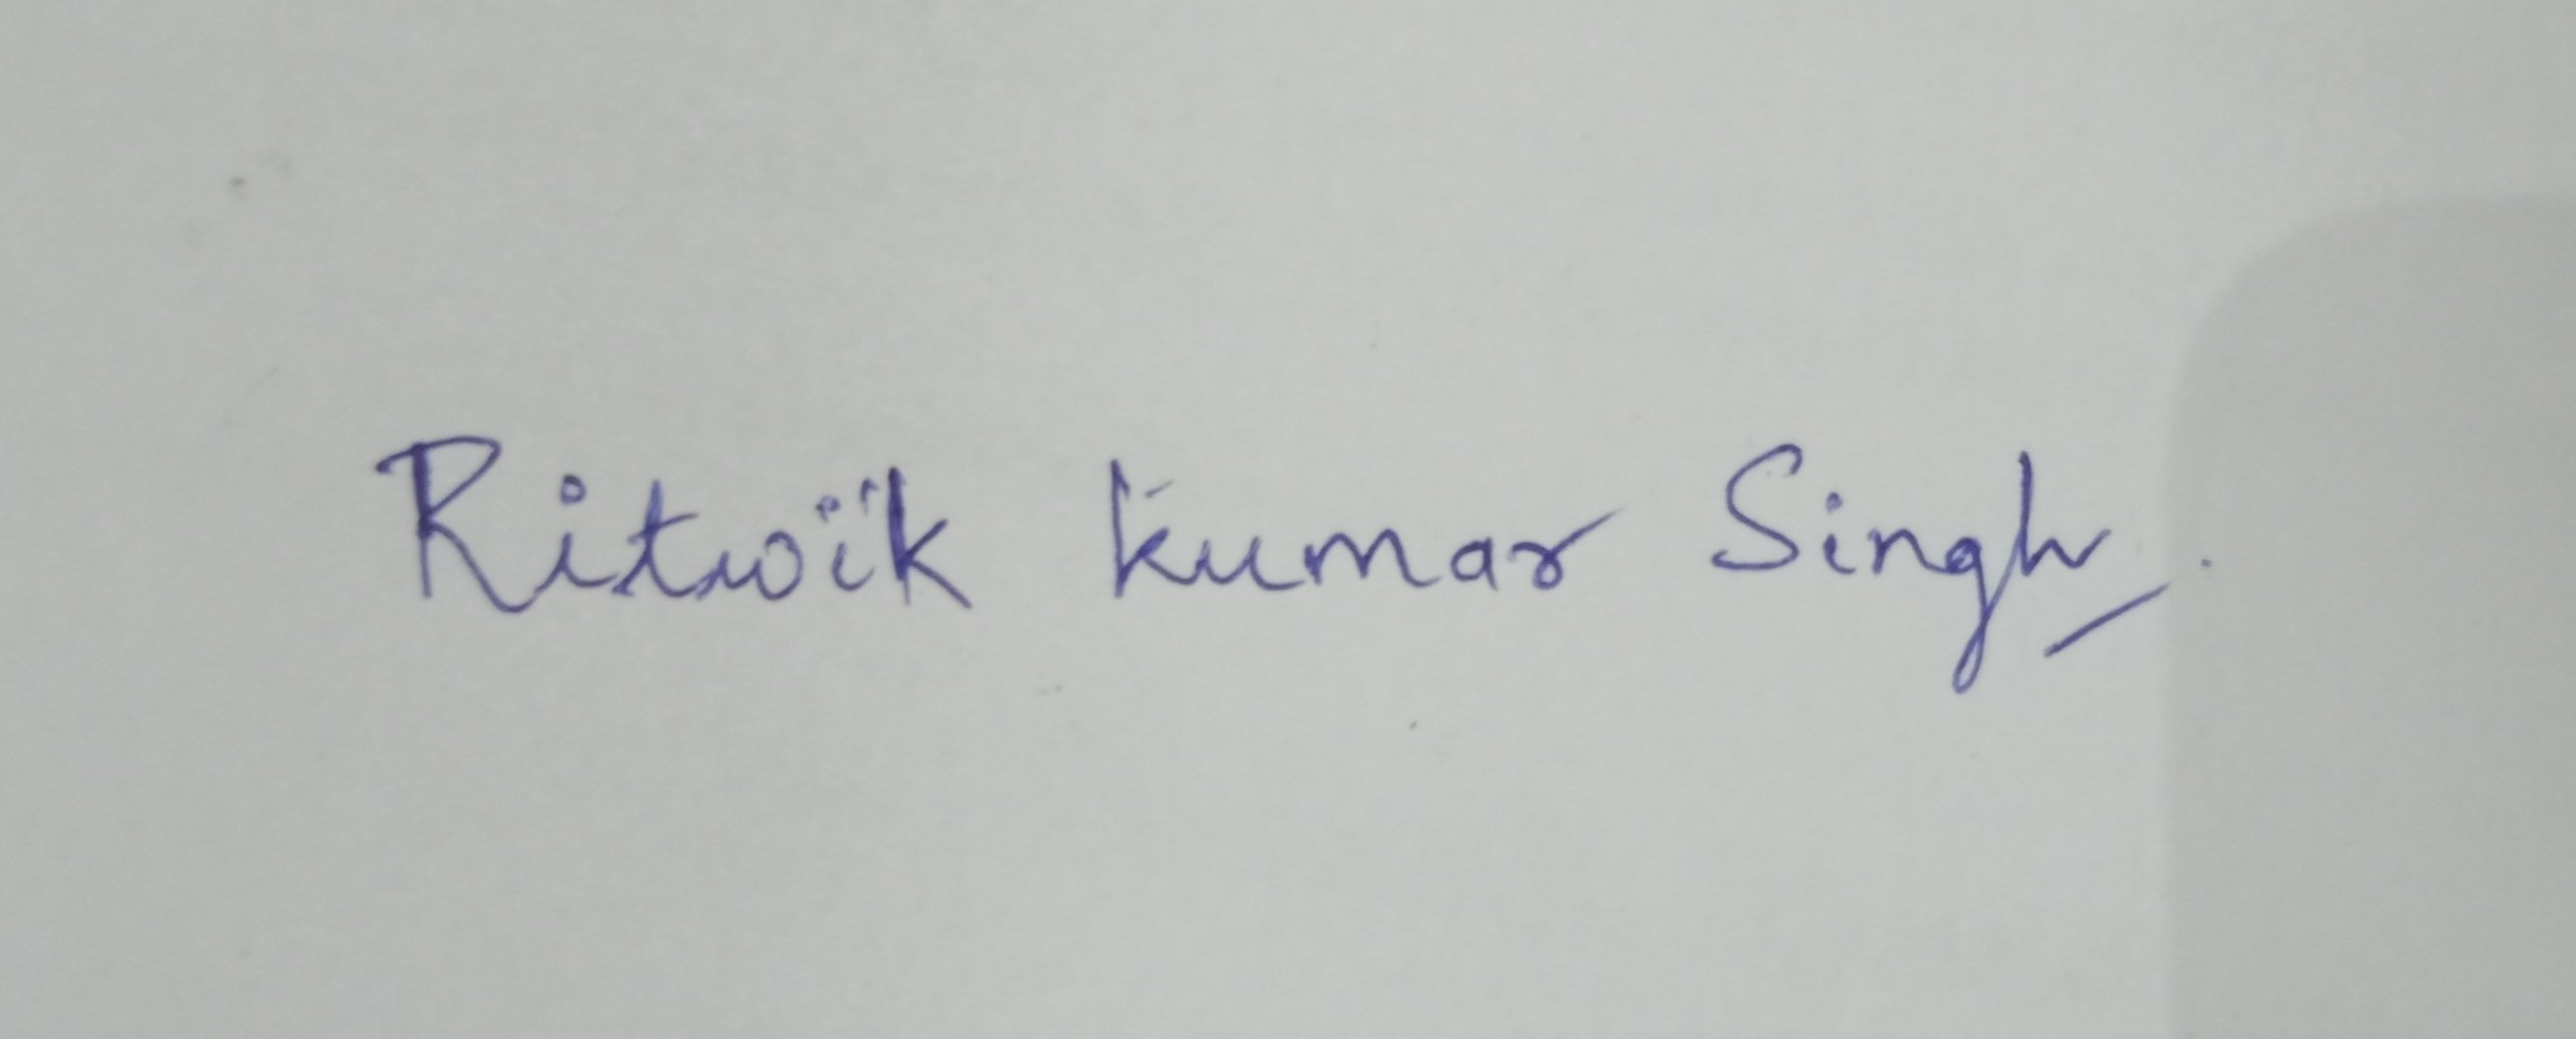 Ritwik Kumar Singh.